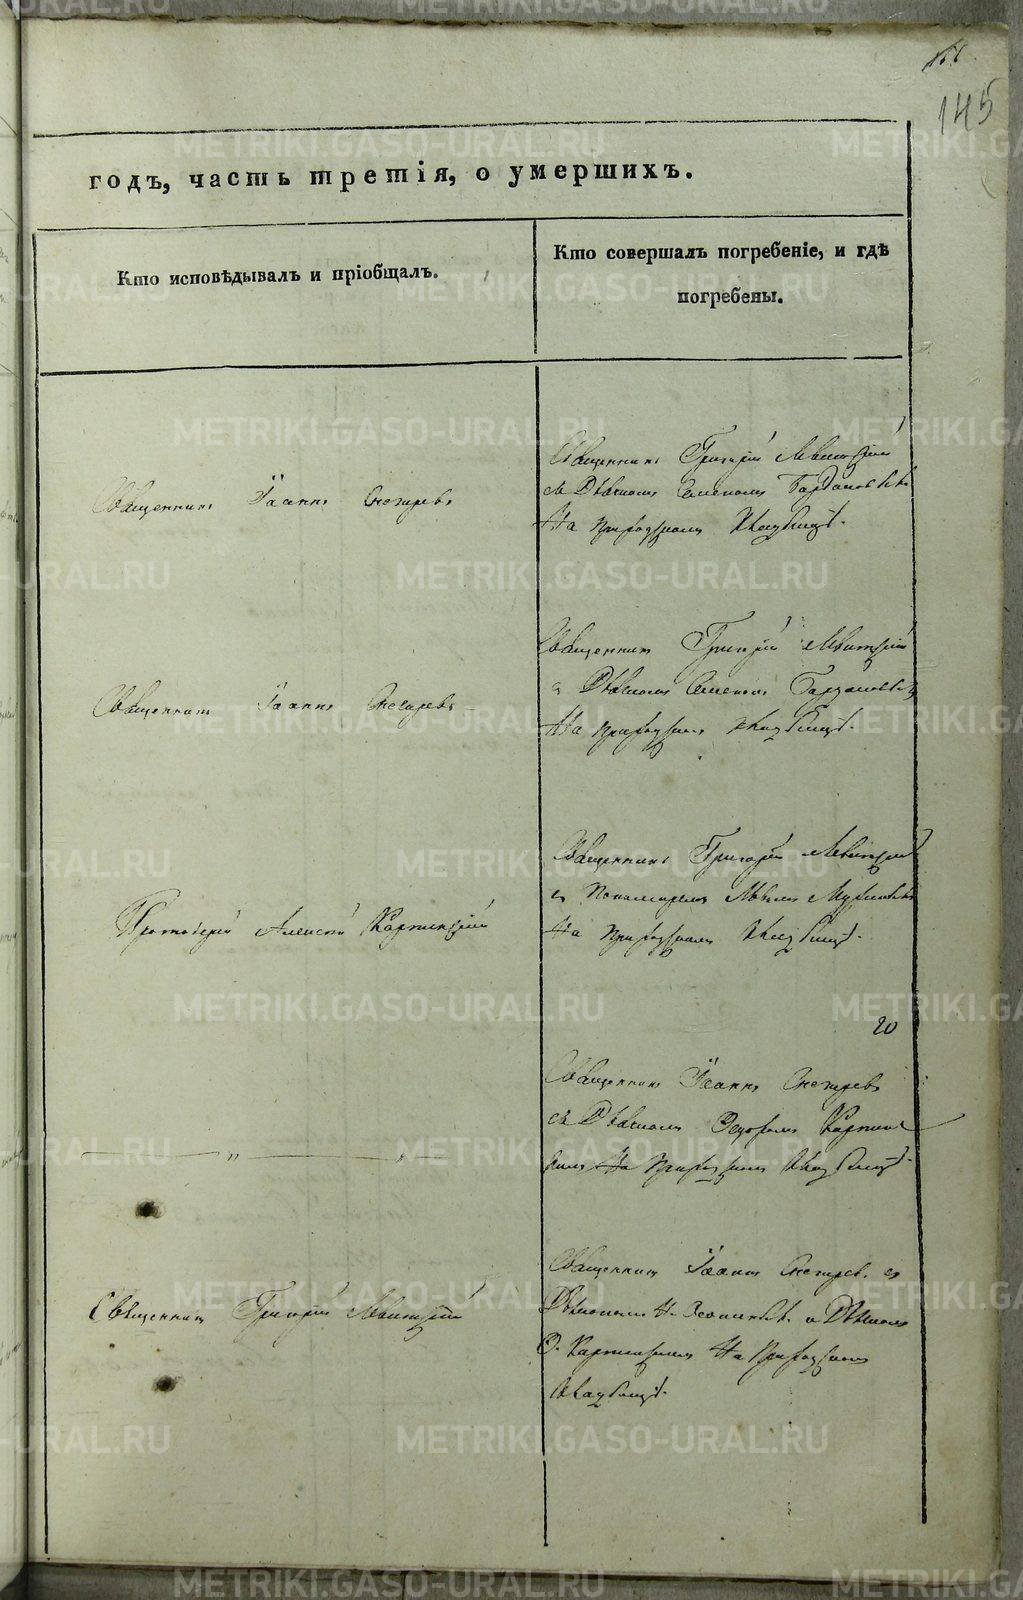 145
годъ, часть третія, о умершихъ.
Кто исповѣдывалъ и пріобщалъ.
Кто совершалъ погребеніе, и гдѣ
погребены.
Священникъ Григорій Левитскій
съ Дьякономъ Симеономъ
Священникъ Іоаннъ Снегиревъ
На приходскомъ кладбищѣ.
Священникъ Григорій Левитскій
съ Дьякономъ Симеономъ
Священникъ Іоаннъ Снегиревъ
На приходскомъ кладбищѣ.
Священникъ Григорій Левитскій
съ Пономаремъ
Протоіерей Алексѣй Карпинскій
На приходскомъ кладбищѣ.
20
Священникъ Іоаннъ Снегиревъ
съ Дьякономъ Ѳедоромъ Карпинс
„ „
кимъ На приходскомъ кладбищѣ.
Священникъ Іоаннъ Снегиревъ съ
Священникъ Григорій Левитскій
и Дьякономъ
Ѳ. Карпинскимъ На приходскомъ
кладбищѣ.
METRIKI.GASO-URAL.RU